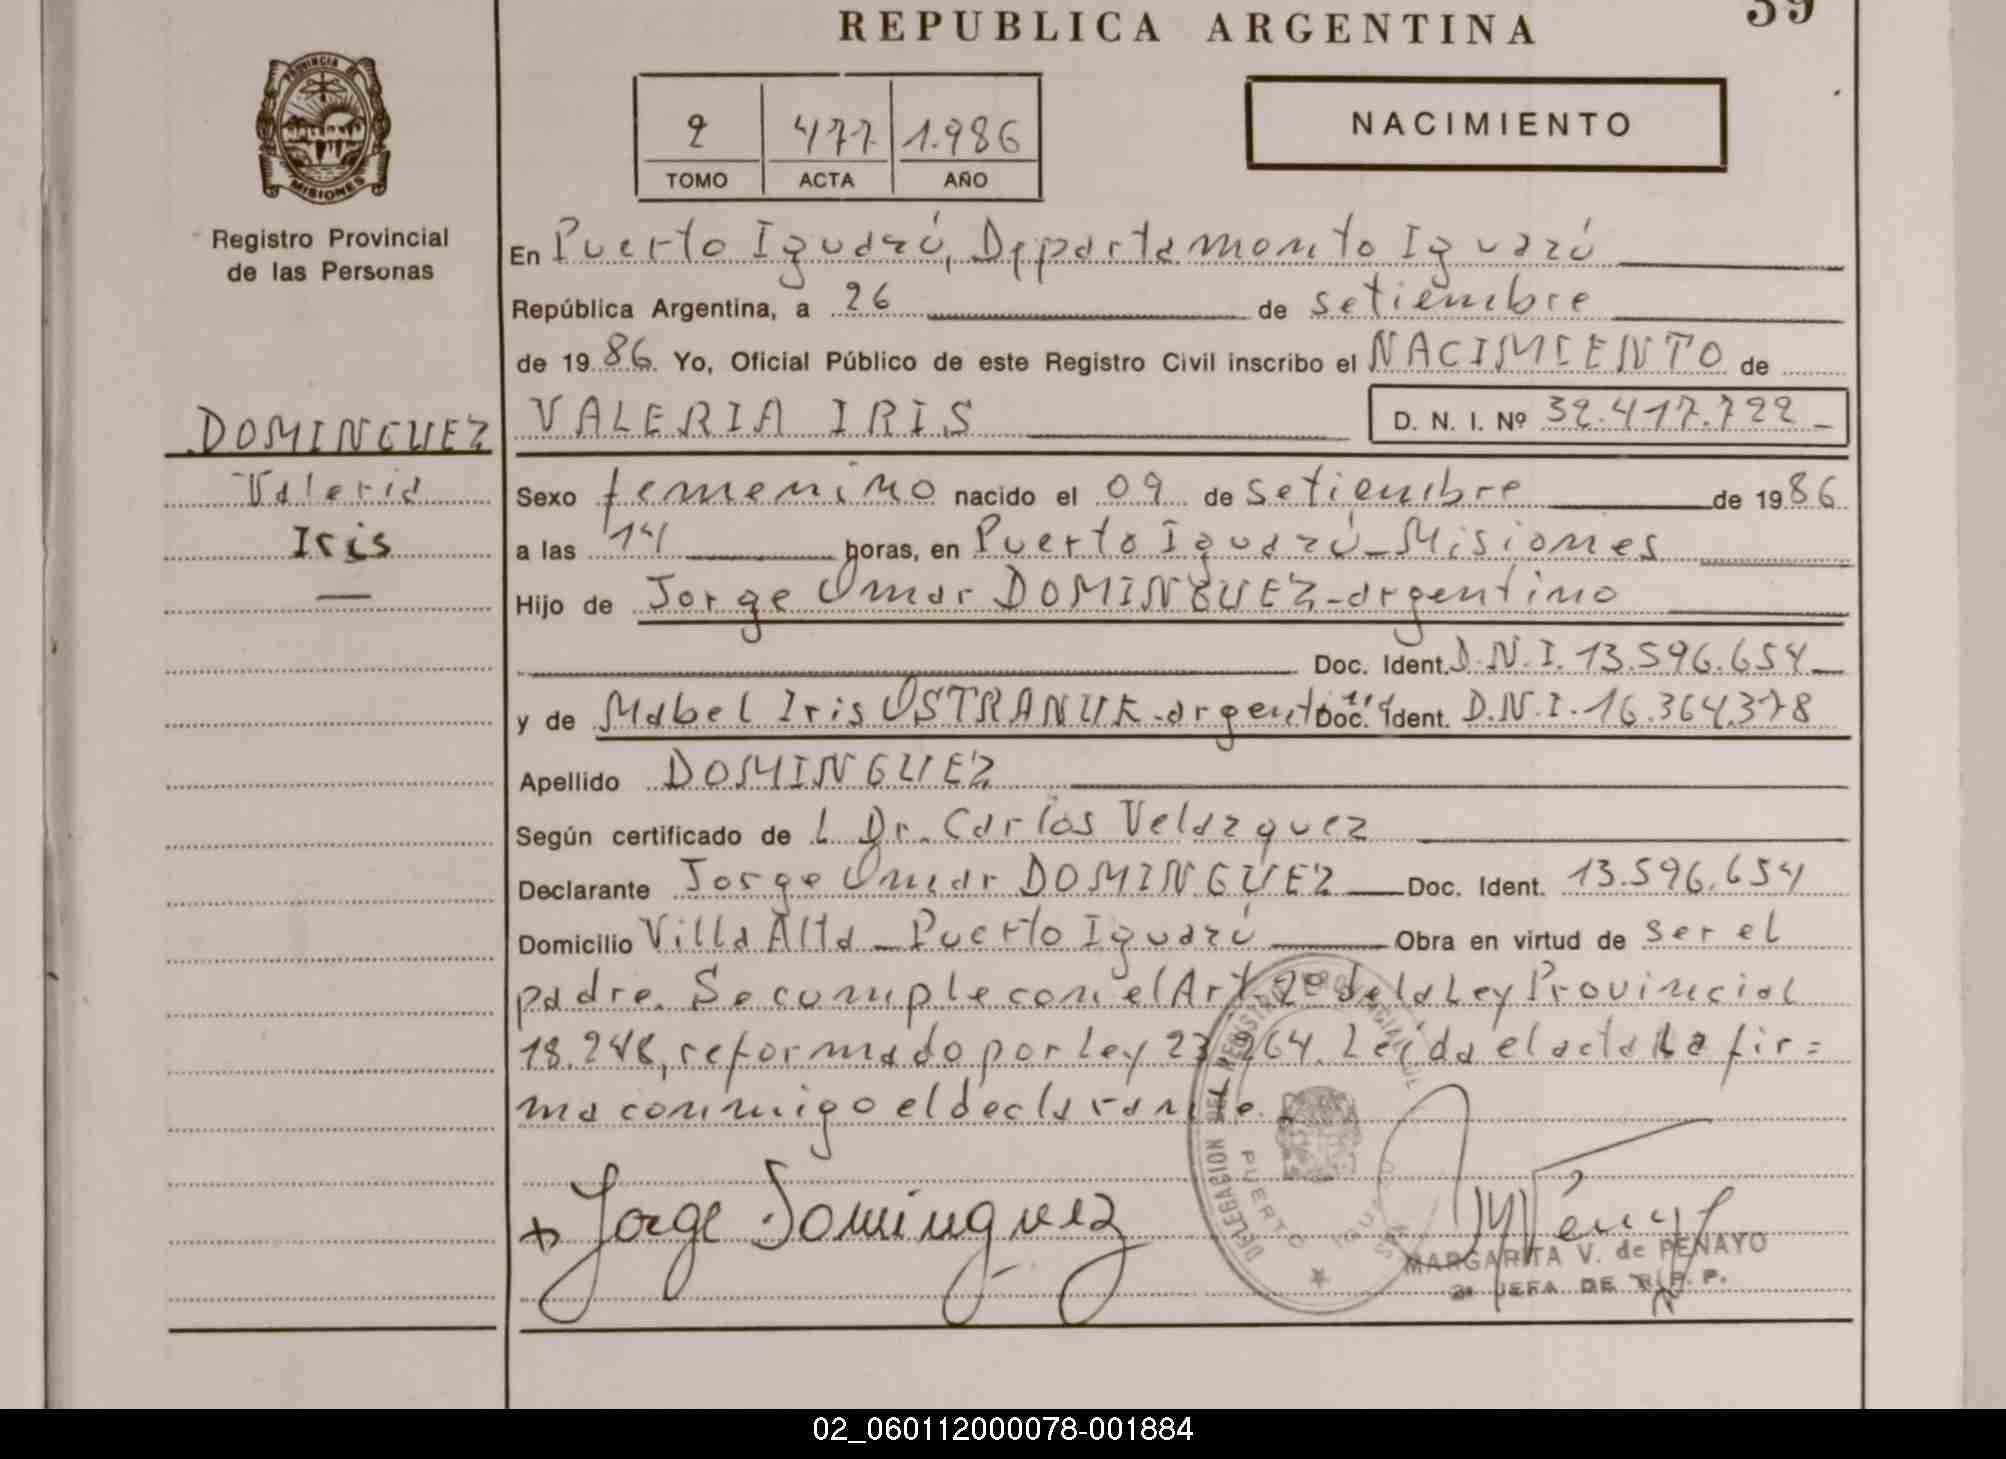 REPUBLICA ARGENTINA
39
PROVINCIA DE
MISIONES
Registro Provincial
de las Personas
2 477 1.986
TOMO ACTA AÑO
NACIMIENTO
En Puerto Iguazú, Departamento Iguazú
República Argentina, a 26 de setiembre
de 1986. Yo, Oficial Público de este Registro Civil inscribo el NACIMIENTO de
DOMINGUEZ
Valeria
Iris
VALERIA IRIS D. N. I. Nº 32.417.722
Sexo femenino nacido el 09 de setiembre de 1986
a las 14 horas, en Puerto Iguazú-Misiones
Hijo de Jorge Omar DOMINGUEZ-argentino
Doc. Ident. D.N.I. 13.596.654
y de Mabel Iris OSTRANUK-argentina Doc. Ident. D.N.I. 16.364.378
Apellido DOMINGUEZ
Según certificado de L Dr. Carlos Velazquez
Declarante Jorge Omar DOMINGUEZ Doc. Ident. 13.596.654
Domicilio Villa Alta - Puerto Iguazú Obra en virtud de ser el
padre. Se cumple con el Art. 2º de la Ley Provincial
18.248, reformado por Ley 23.264. Leída el acta la fir=
ma conmigo el declarante.
DELEGACION DEL REGISTRO PROVINCIAL DE
PUERTO IGUAZU
Jorge Dominguez
MARGARITA V. de PENAYO
2ª JEFA DE R. P. P.
02_060112000078-001884